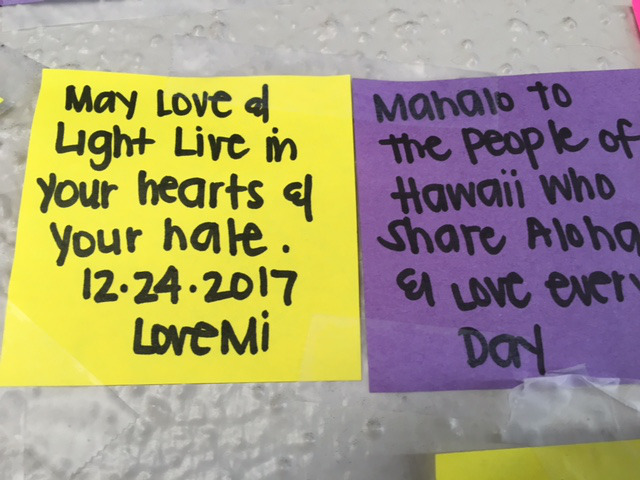 May Love &
Light Live in
your hearts &
your hale.
12.24.2017
LoveMi
Mahalo to
the People of
Hawaii who
share Aloha
& Love every
Day